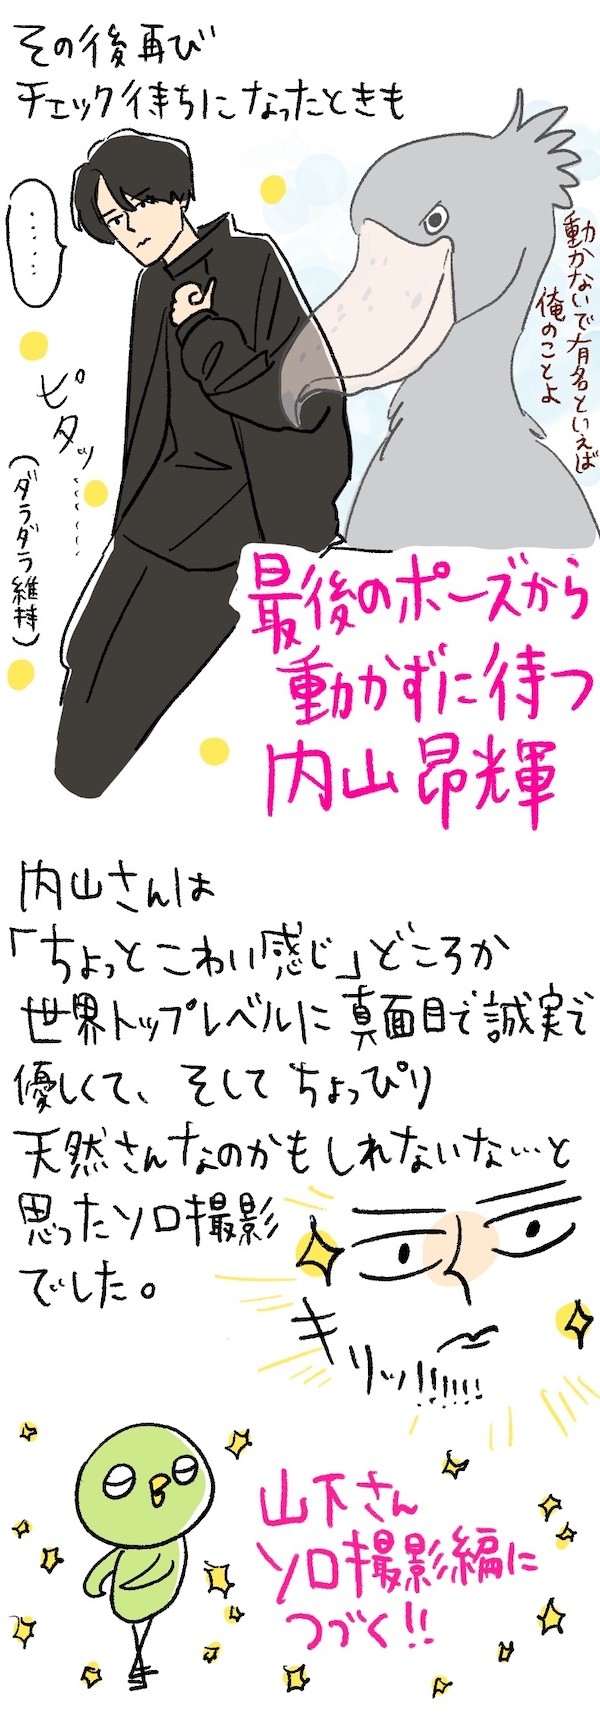 その後再び
チェック待ちになったときも
……
動かないで有名といえば
俺のことよ
ピタッ……
（ダラダラ維持）
最後のポーズから
動かずに待つ
内山昂輝
内山さんは
「ちょっとこわい感じ」どころか
世界トップレベルに真面目で誠実で
優しくて、そしてちょっぴり
天然さんなのかもしれないな…と
思ったソロ撮影
でした。
キリッ!!!!!!
山下さん
ソロ撮影編に
つづく!!